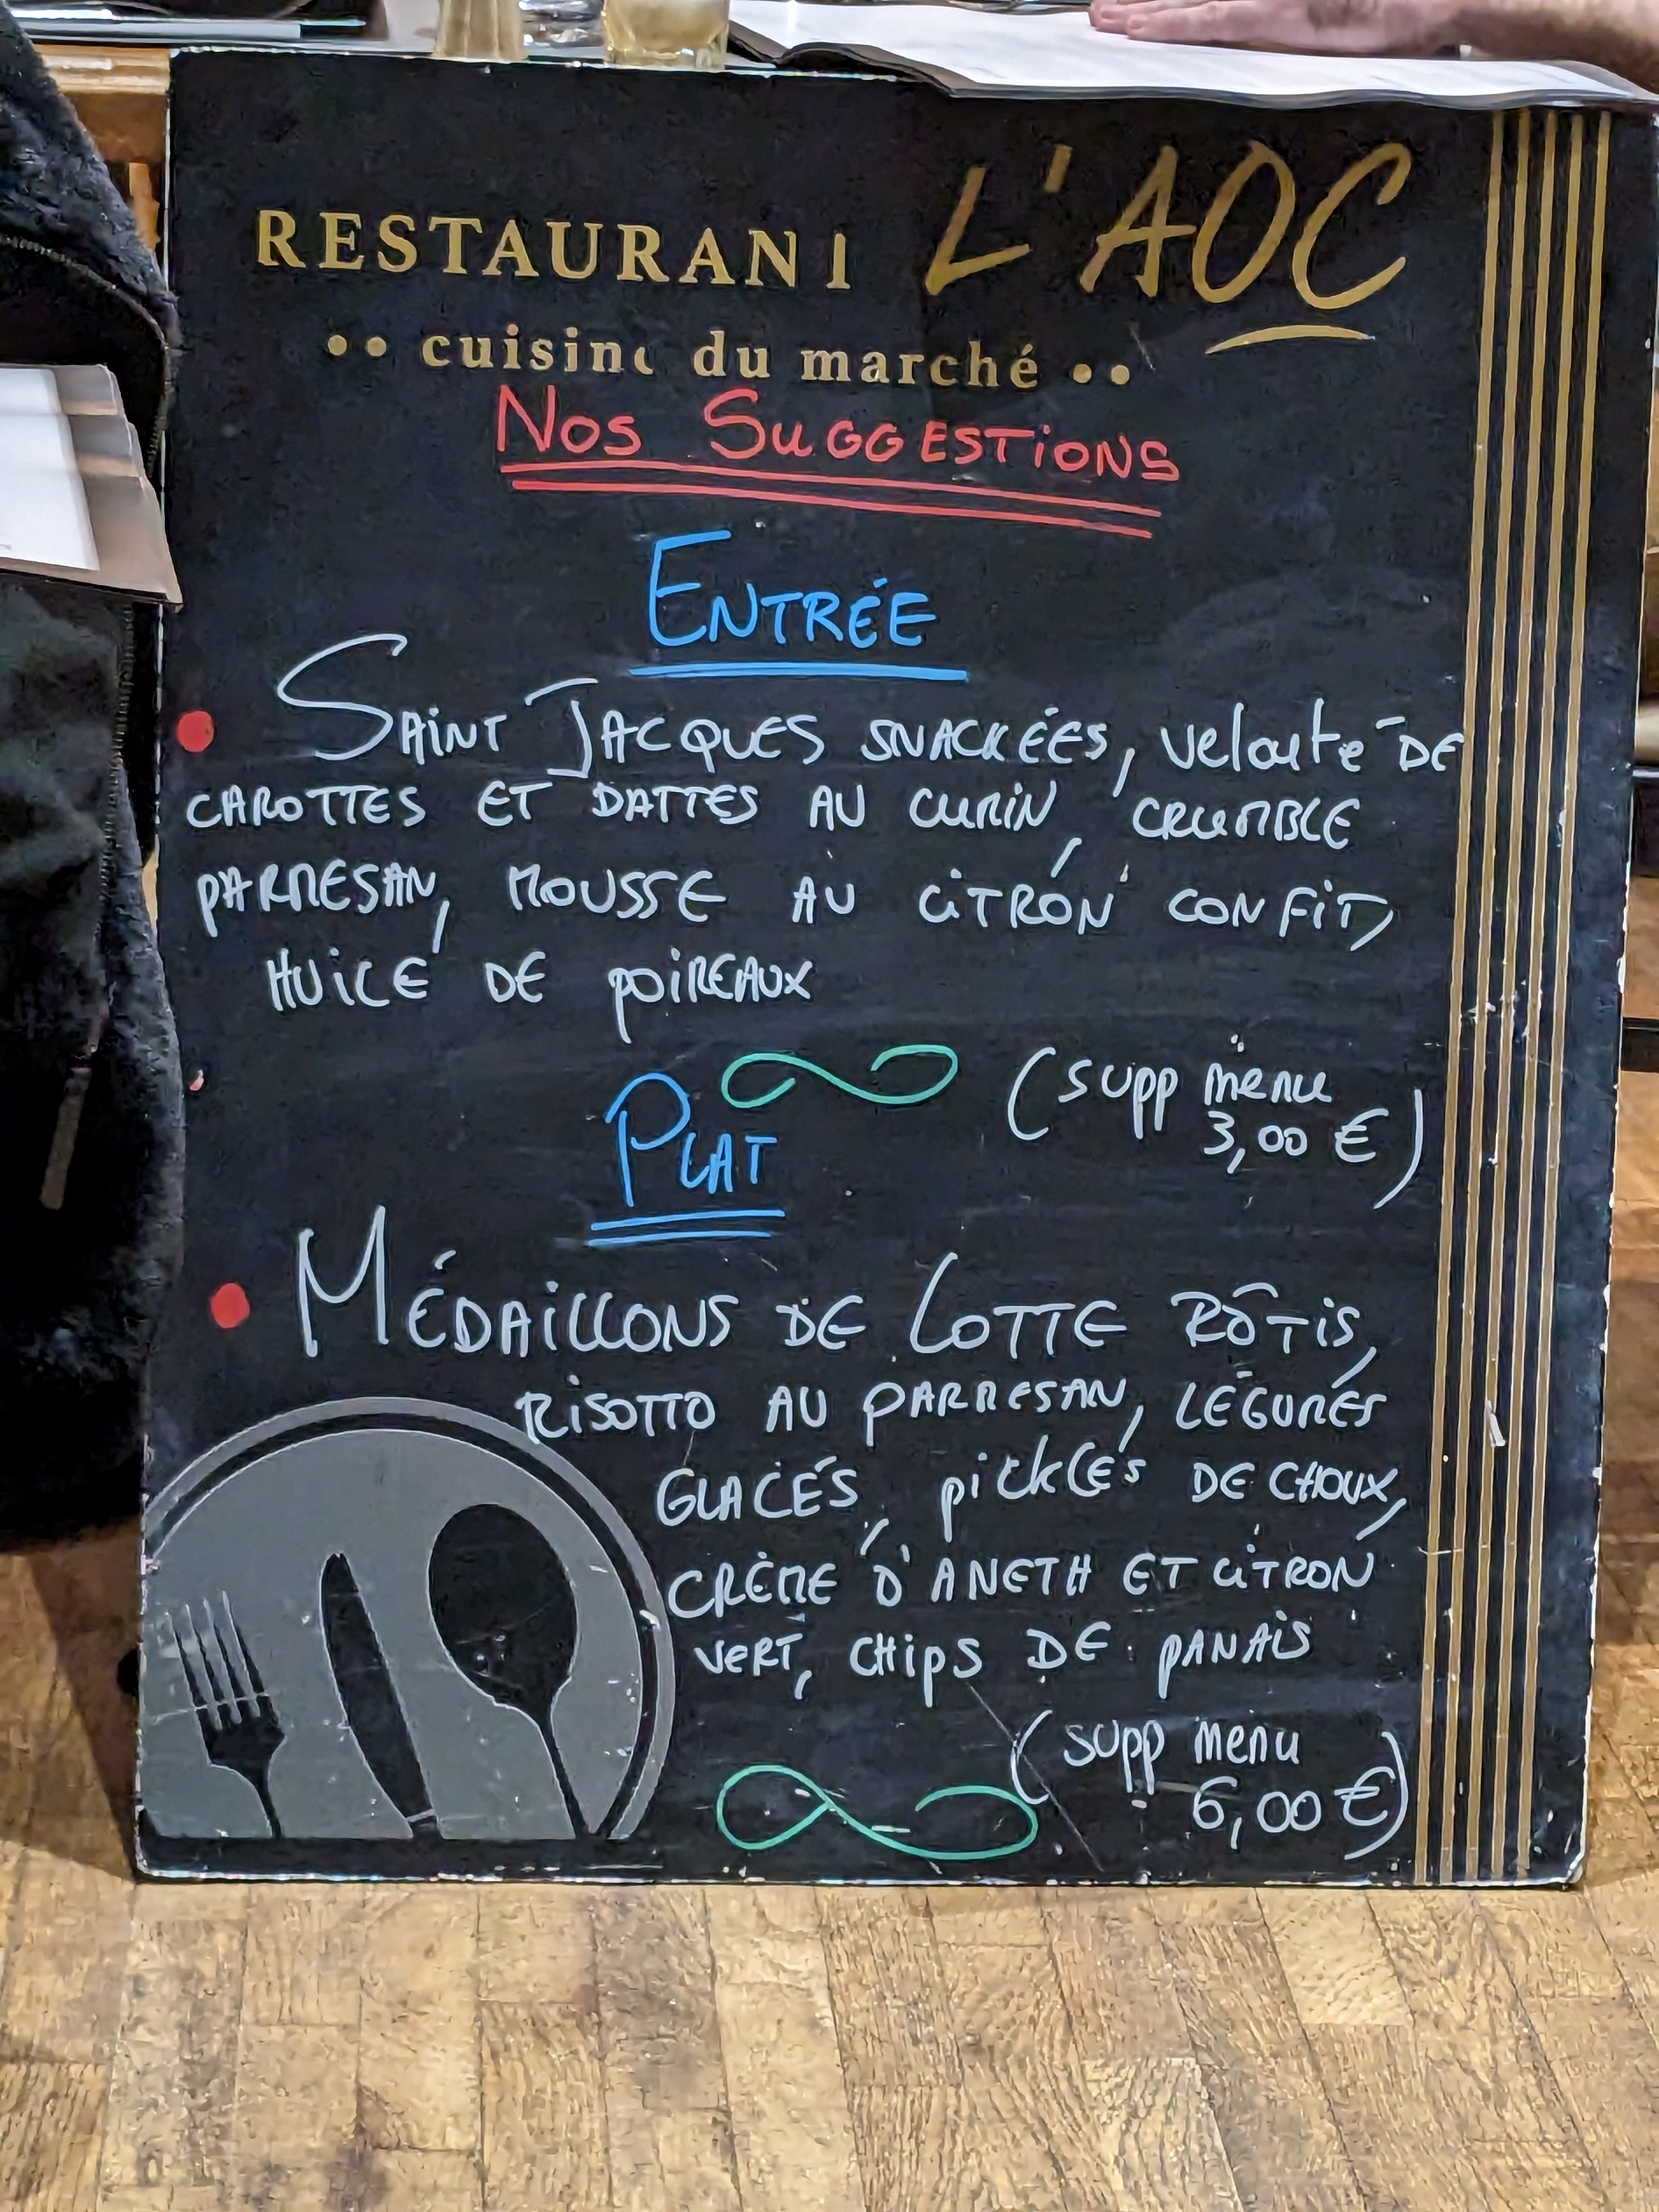 RESTAURANT L'AOC
•• cuisine du marché ••
Nos SuGGESTiONS
ENTRÉE
• SAiNT JACQUES SNACKÉES, velouté DE
CAROTTES ET DATTES AU CUMiN, CRUMBLE
PARMESAN, MOUSSE AU CiTRON CONFiT,
HUiLE DE POiREAUX
(supp menu
3,00 €)
PLAT
• MÉDAiLLONS DE LOTTE RÔTiS,
RiSOTTO AU PARMESAN, LÉGUMES
GLACÉS, pickLES DE CHOUX,
CRÈME D'ANETH ET CiTRON
VERT, CHips DE PANAiS
(supp menu
6,00 €)